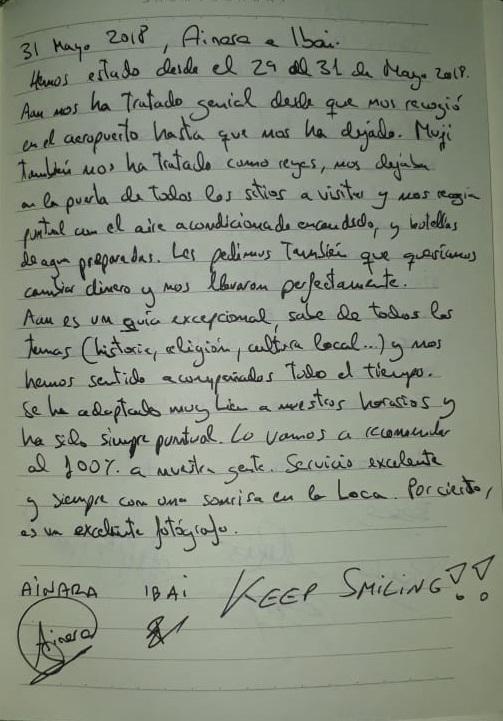 31 Mayo 2018, Ainara e Ibai.
Hemos estado desde el 29 al 31 de Mayo 2018.
Aan nos ha tratado genial desde que nos recogió
en el aeropuerto hasta que nos ha dejado. Muji
también nos ha tratado como reyes, nos dejaba
en la puerta de todos los sitios a visitar y nos recogía
puntual con el aire acondicionado encendido, y botellas
de agua preparadas. Les pedimos también que queríamos
cambiar dinero y nos llevaron perfectamente.
Aan es un guía excepcional, sabe de todos los
temas (historia, religión, cultura local...) y nos
hemos sentido acompañados todo el tiempo.
Se ha adaptado muy bien a nuestros horarios y
ha sido siempre puntual. Lo vamos a recomendar
al 100% a nuestra gente. Servicio excelente
y siempre con una sonrisa en la boca. Por cierto,
es un excelente fotógrafo.
AINARA IBAI KEEP SMILING!!
Ainara